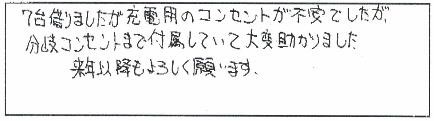 7台借りましたが充電用のコンセントが不安でしたが、
分岐コンセントまで付属していて大変助かりました
来年以降もよろしく願います.